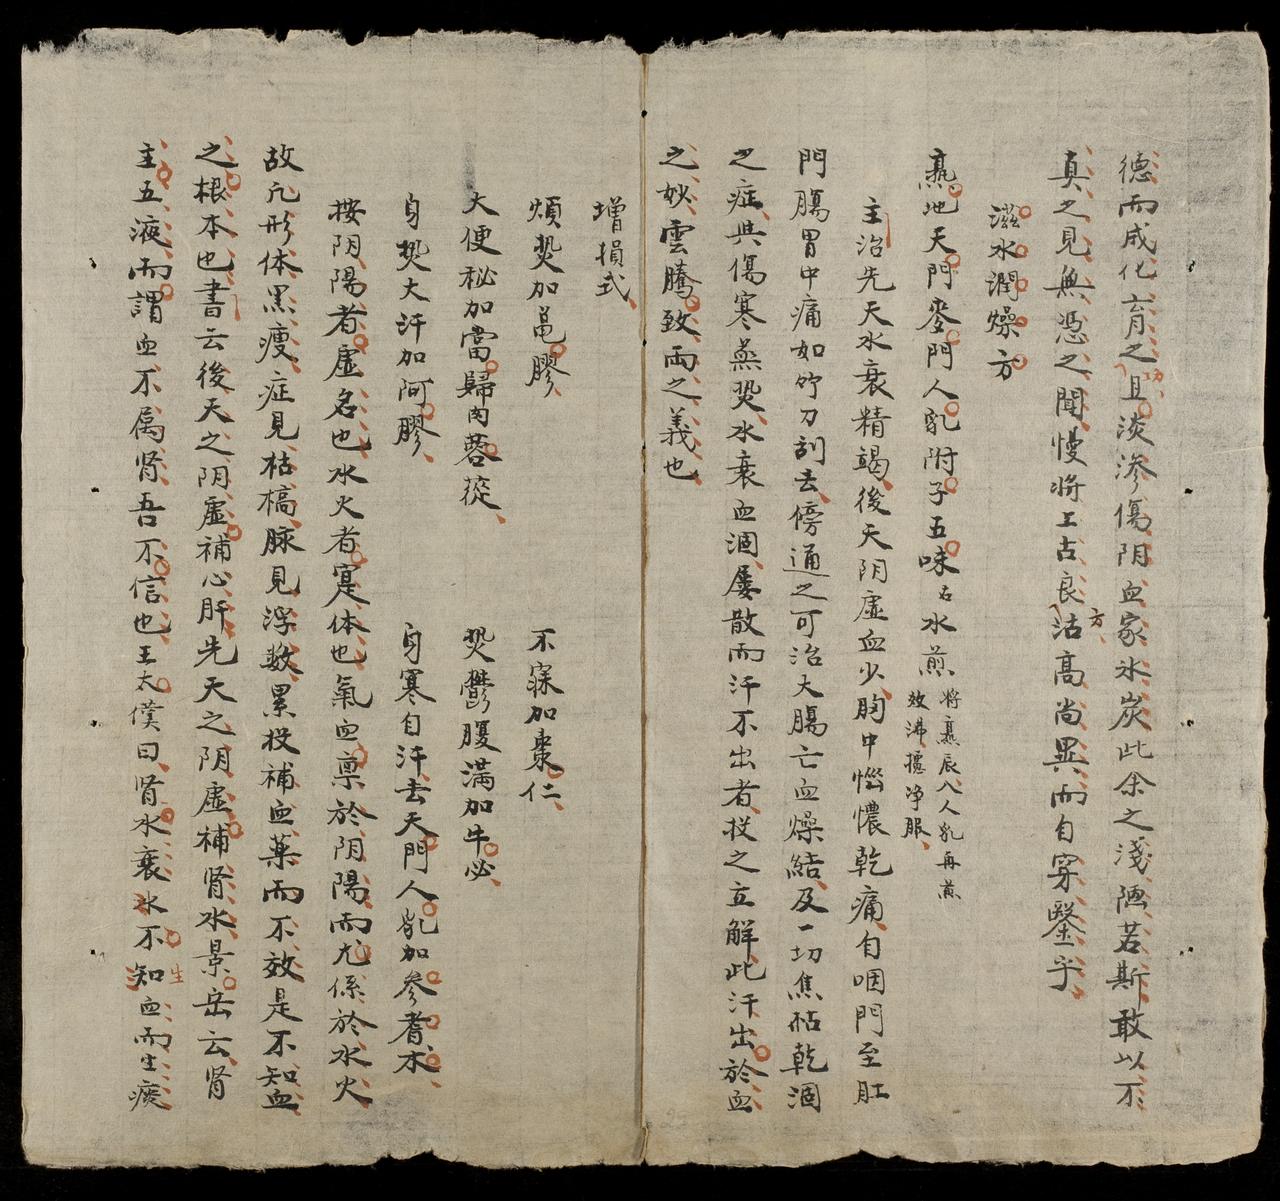 德而成化育之功且淡滲傷阴血家氷炭此余之淺陋若斯敢以不
真之見無憑之聞慢將上古良方沽高尚異而自穿鑿乎
滋水潤燥方
熟地天門麥門人乳附子五味右水煎將熹辰入人乳再煎
效沸攄净服
主治先天水衰精竭後天阴虛血少胸中惱憹乾痛自咽門至肛
門膓胃中痛如竹刀刮去傍通之可治大膓亡血燥結及一切焦枯乾涸
之症與傷寒蒸𤍠水衰血涸屡散而汗不出者投之立解此汗出於血
之妙雲騰致雨之義也
增損式
煩𤍠加黾膠 不寐加棗仁
大便秘加當歸肉蓉蓯 𤍠鬱腹满加牛必
身𤍠大汗加阿膠 身寒自汗去天門人乳加參耆朮
按阴陽者虛名也水火者寔体也氣血禀於阴陽而尤係於水火
故凢形体黑瘦症見枯槁脉見浮数累投補血藥而不效是不知血
之根本也書云後天之阴虛補心肝先天之阴虛補肾水景岳云肾
主五液而謂血不属肾吾不信也王太僕曰肾水衰水不生知血而生痰